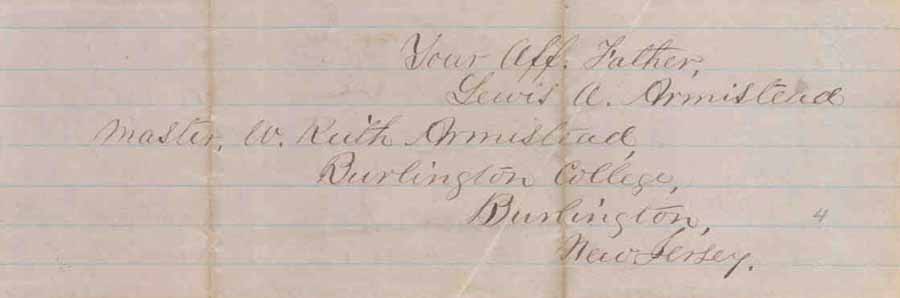 Your Aff. Father,
Lewis A. Armistead
Master, W. Keith Armistead,
Burlington College,
Burlington,
4
New Jersey.